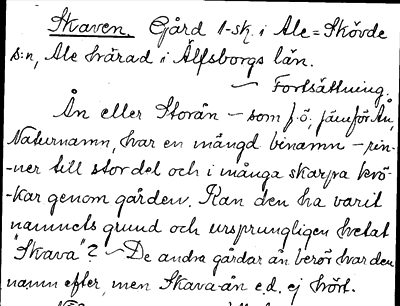 Skaven. Gård 1-sk. i Ale=Skövde
s:n, Ale härad i Älfsborgs län.
— Fortsättning.
Ån eller Storån — som f.ö., jämför Ån,
Naturnamn, har en mängd binamn — rin-
-ner till stor del och i många skarpa krö-
-kar genom gården. Kan den ha varit
namnets grund och ursprungligen hetat
"Skava"? — De andra gårdar ån berör har den
namn efter, men Skava-ån e.d. ej hört.